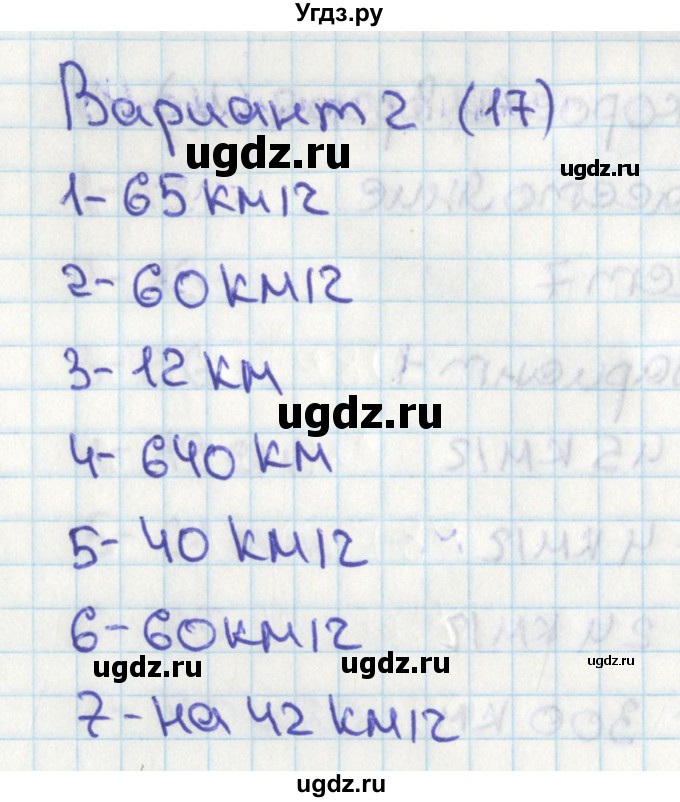 Угдз.ру
Вариант 2 (17)
ugdz.ru
1- 65 км/ч
2- 60 км/ч
3- 12 км
ugdz.ru
4- 640 км
5- 40 км/ч
6- 60 км/ч
ugdz.ru
ugdz.ru
ugdz.ru
7- на 42 км/ч
ugdz.ru